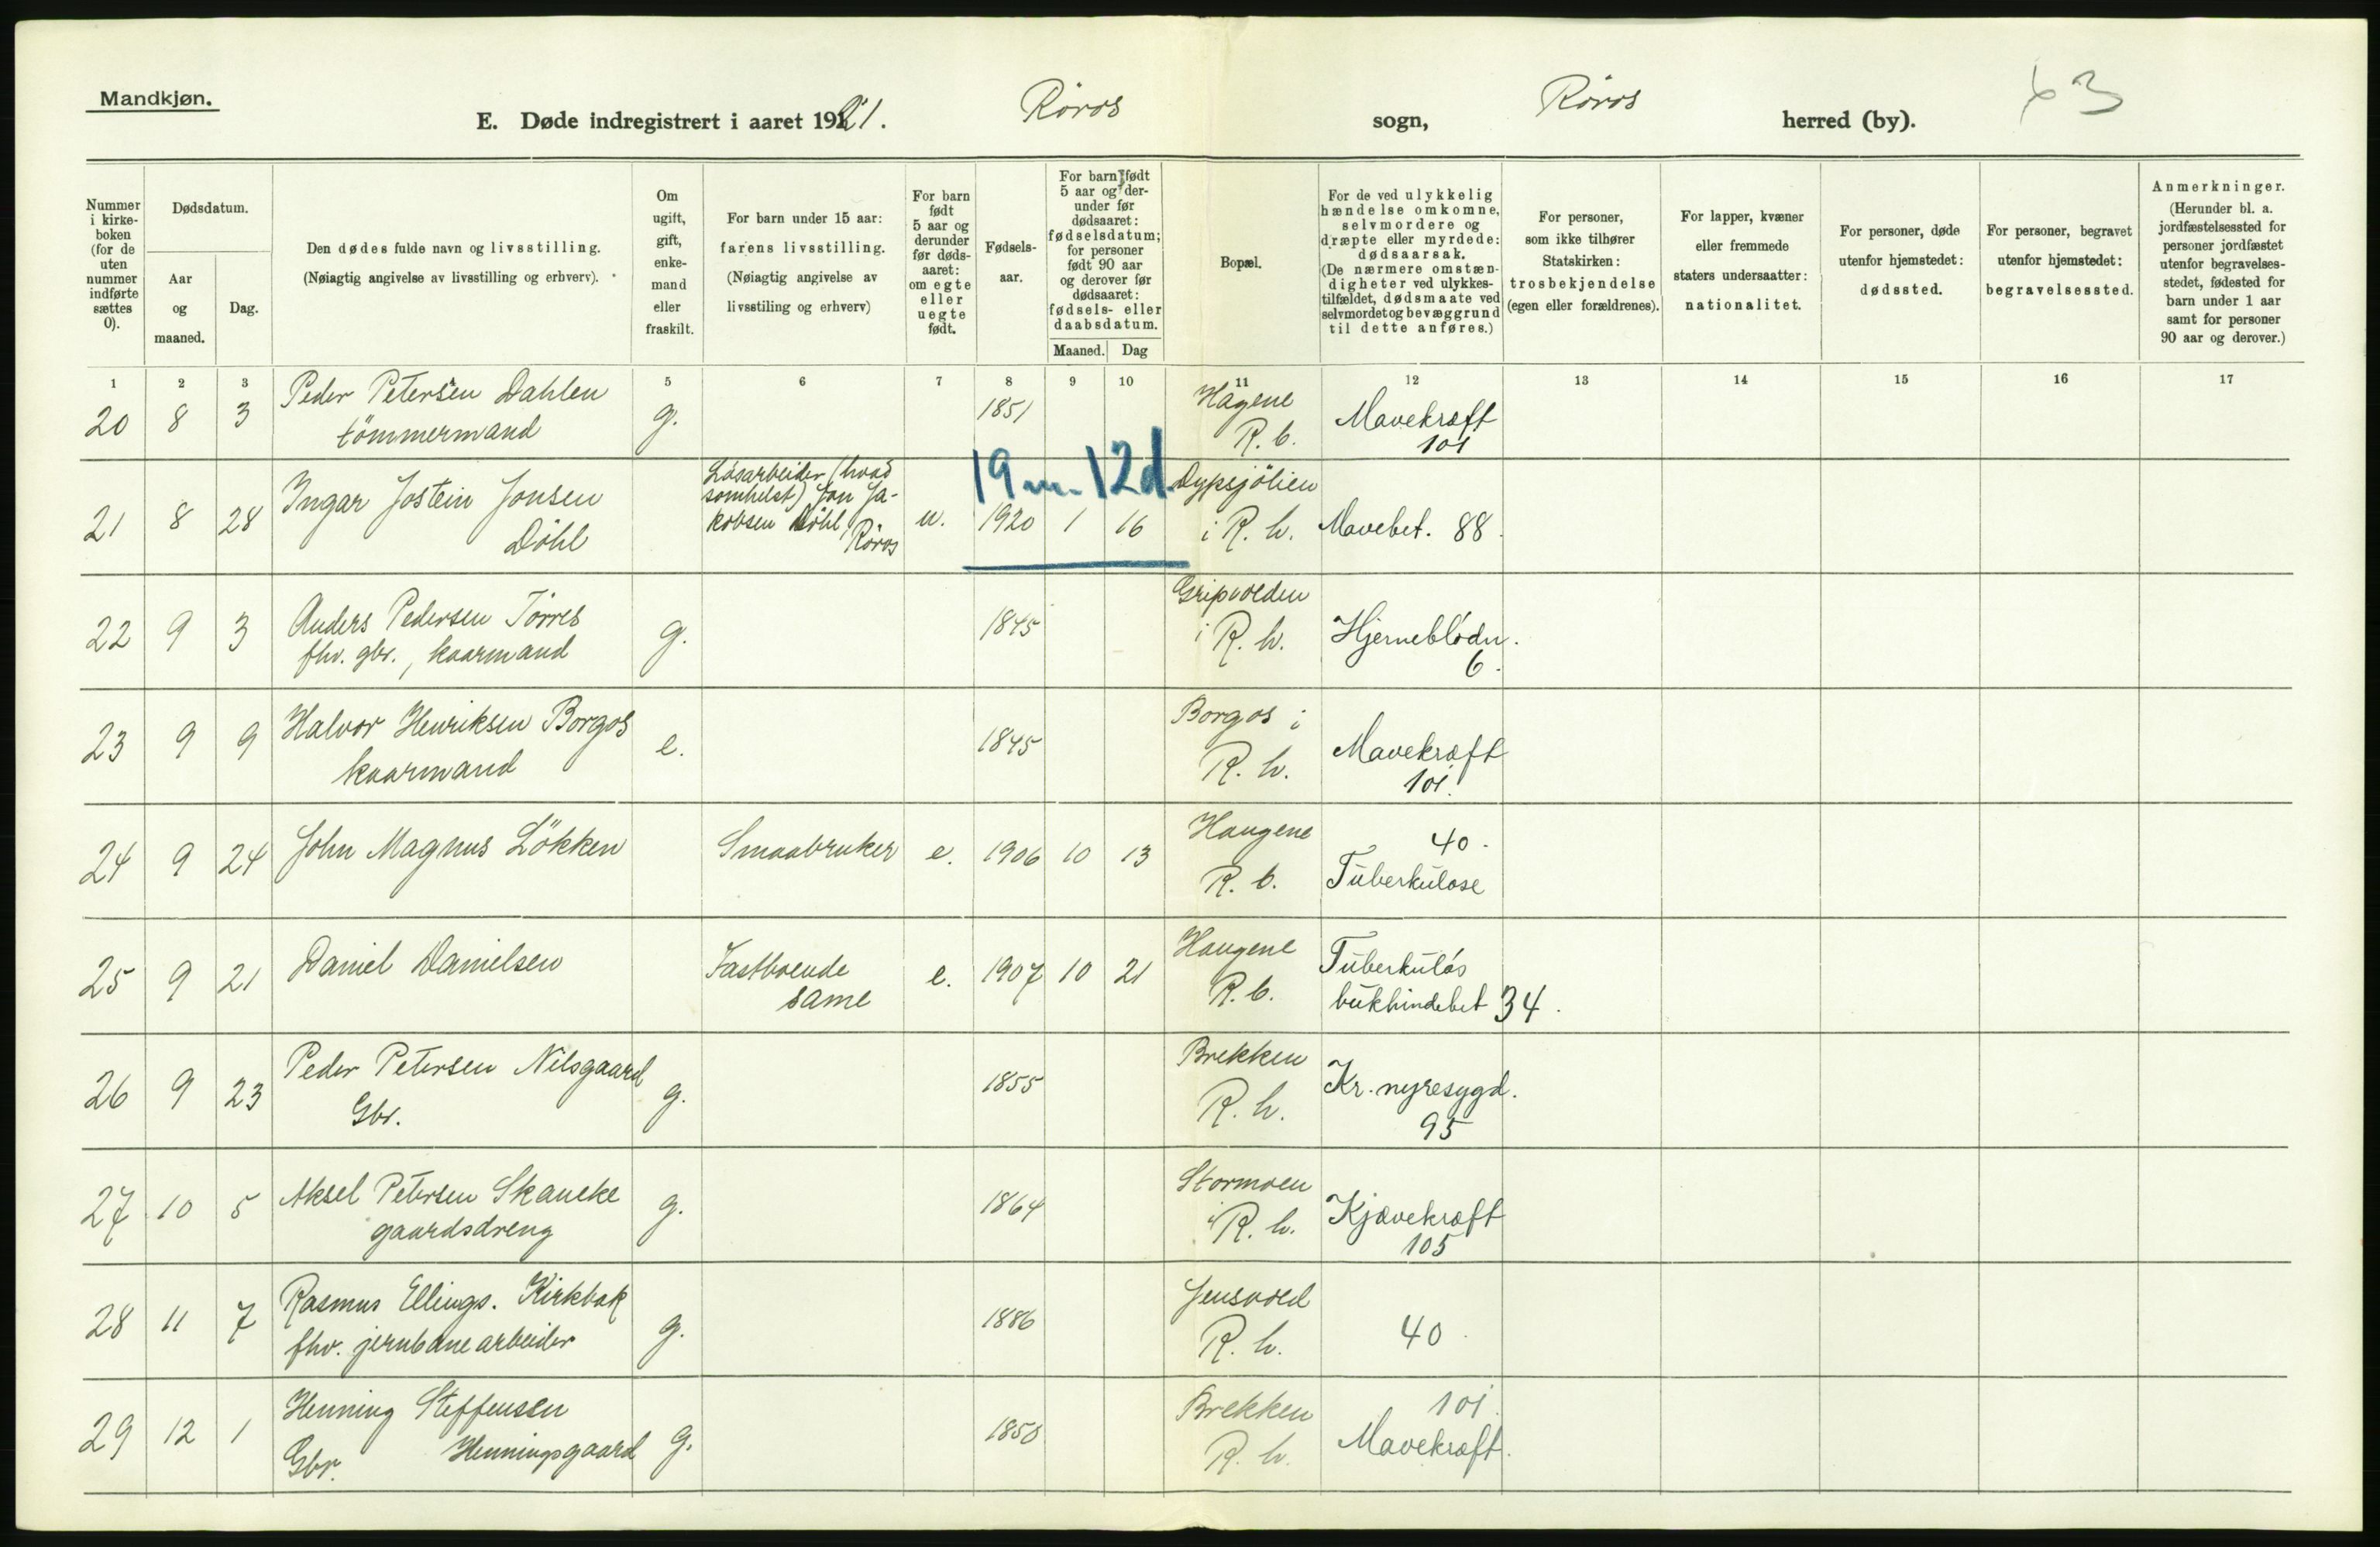 Mandkjøn.
E. Døde indregistrert i aaret 1921. Röros sogn, Röros herred (by). 63
Nummer i kirke-boken (for de uten nummer indførte sættes 0).
Dødsdatum.
Aar og maaned.
Dag.
Den dødes fulde navn og livsstilling.
(Nøiagtig angivelse av livsstilling og erhverv).
Om ugift, gift, enke-mand eller fraskilt.
For barn under 15 aar:
farens livsstilling.
(Nøiagtig angivelse av livsstiling og erhverv)
For barn født 5 aar og derunder før døds-aaret: om egte eller uegte født.
Fødsels-aar.
For barn født 5 aar og der-under før dødsaaret: fødselsdatum; for personer født 90 aar og derover før dødsaaret: fødsels- eller daabsdatum.
Maaned. Dag
Bopæl.
For de ved ulykkelig hændelse omkomne, selvmordere og dræpte eller myrdede: dødsaarsak. (De nærmere omstæn-digheter ved ulykkes-tilfældet, dødsmaate ved selvmordet og bevæggrund til dette anføres.)
For personer, som ikke tilhører Statskirken: trosbekjendelse (egen eller forældrenes).
For lapper, kvæner eller fremmede staters undersaatter: nationalitet.
For personer, døde utenfor hjemstedet: dødssted.
For personer, begravet utenfor hjemstedet: begravelsessted.
Anmerkninger. (Herunder bl. a. jordfæstelsessted for personer jordfæstet utenfor begravelses-stedet, fødested for barn under 1 aar samt for personer 90 aar og derover.)
1 2 3 5 6 7 8 9 10 11 12 13 14 15 16 17
20 8 3 Peder Petersen Dahlen g. 1851 Hagene Mavekræft
tömmermand R. b. 101
19 m. 12 d.
21 8 28 Ingar Jostein Jonsen Lösarbeider (hvad u. 1920 1 16 Dypsjölien Mavebet. 88.
Döhl somhelst) Jon Ja- i R. h.
kobsen Döhl,
Röros
22 9 3 Anders Pedersen Törres g. 1845 Gripvolden Hjerneblödn.
fhv. gbr., kaarmand i R. h. 6.
23 9 9 Halvor Henriksen Borgos e. 1845 Borgos i Mavekræft
kaarmand R. h. 101.
24 9 24 John Magnus Lökken Smaabruker e. 1906 10 13 Haugene 40.
R. b. Tuberkulose
25 9 21 Daniel Danielsen Fastboende e. 1907 10 21 Haugene Tuberkulös
same R. b. bukhindebet 34.
26 9 23 Peder Petersen Nilsgaard g. 1855 Brekken Kr. nyresygd.
Gbr. R. h. 95
27 10 5 Aksel Petersen Skancke g. 1864 Stormoen Kjævekræft
gaardsdreng i R. h. 105
28 11 7 Rasmus Ellings. Kirkbak g. 1886 Jensvold 40.
fhv. jernbanearbeider R. h.
29 12 1 Henning Steffensen g. 1850 Brekken 101.
Gbr. Henningsgaard R. h. Mavekræft.